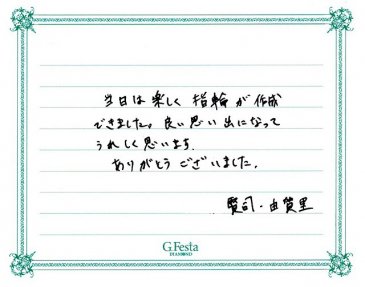 当日は楽しく指輪が作成
できました。良い思い出になって
うれしく思います。
ありがとうございました。
賢司・由賀里
G.Festa
DIAMOND